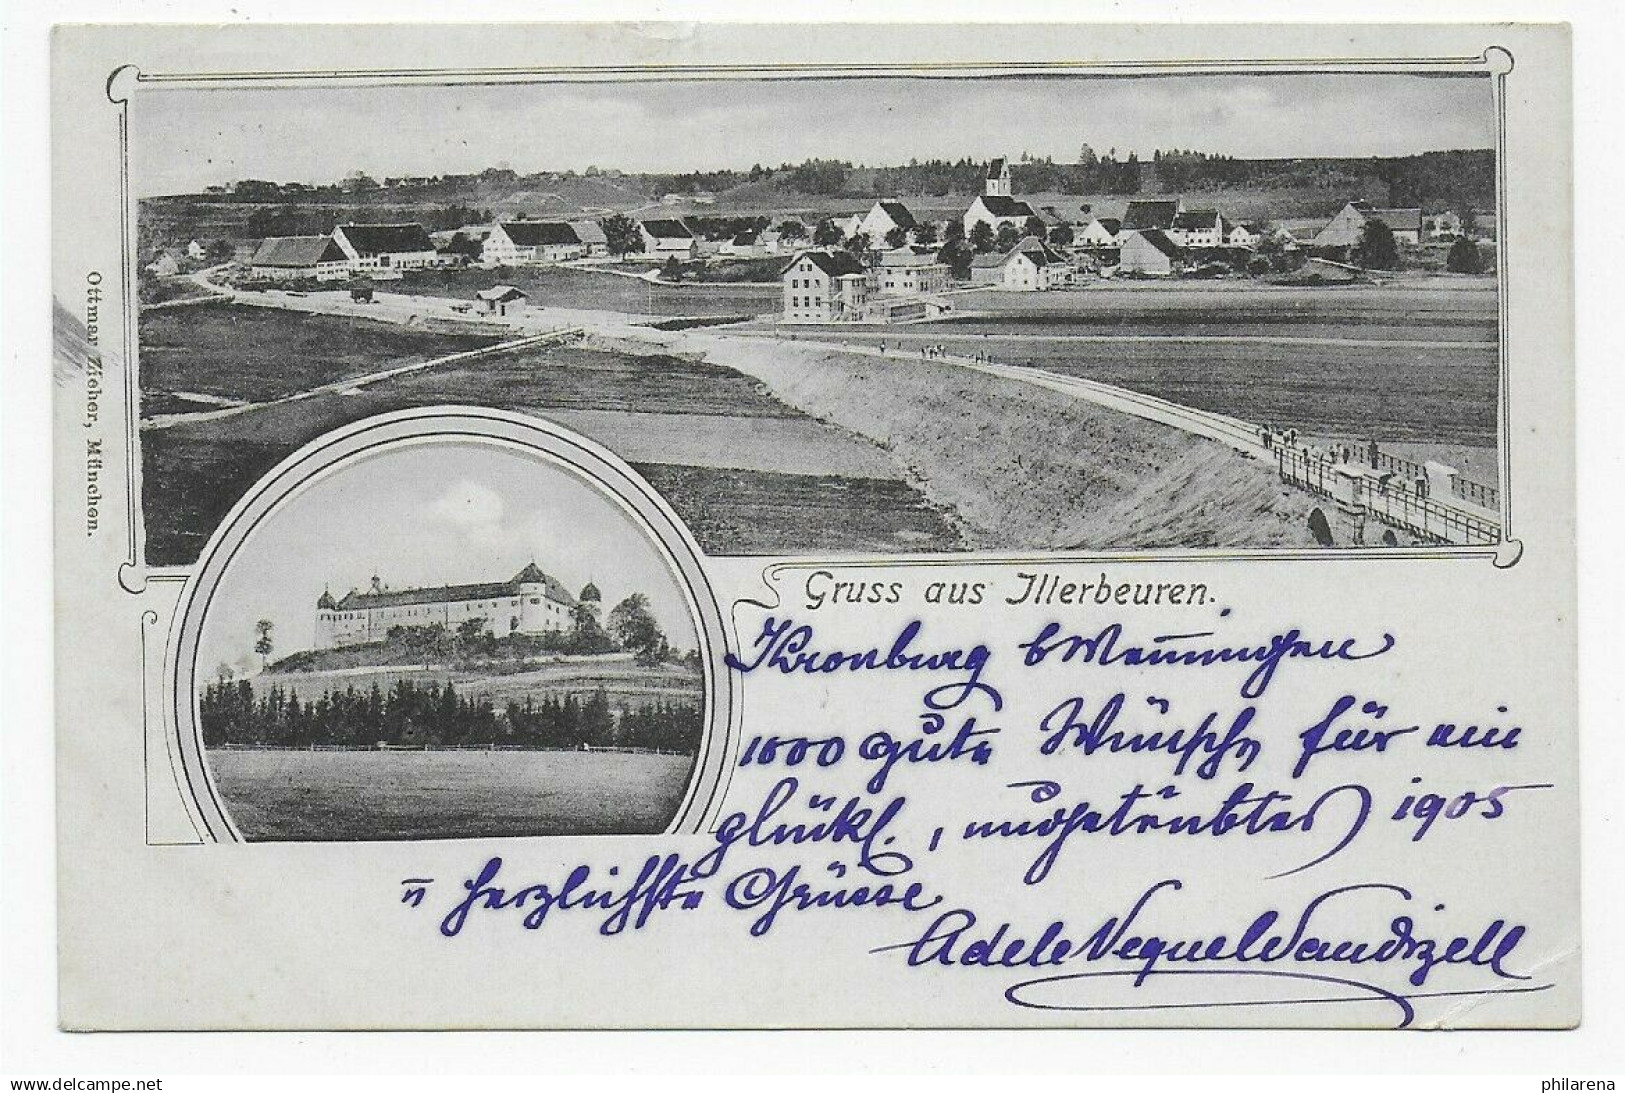 Ottmar Zieher, München.
Gruss aus Illerbeuren.
Kronburg b Memingen
1000 gute Wünsche für ein
glückl., ungetrübtes 1905
u herzlichste Grüsse
Adele Vequel Wandizell
delcampe.net
philarena